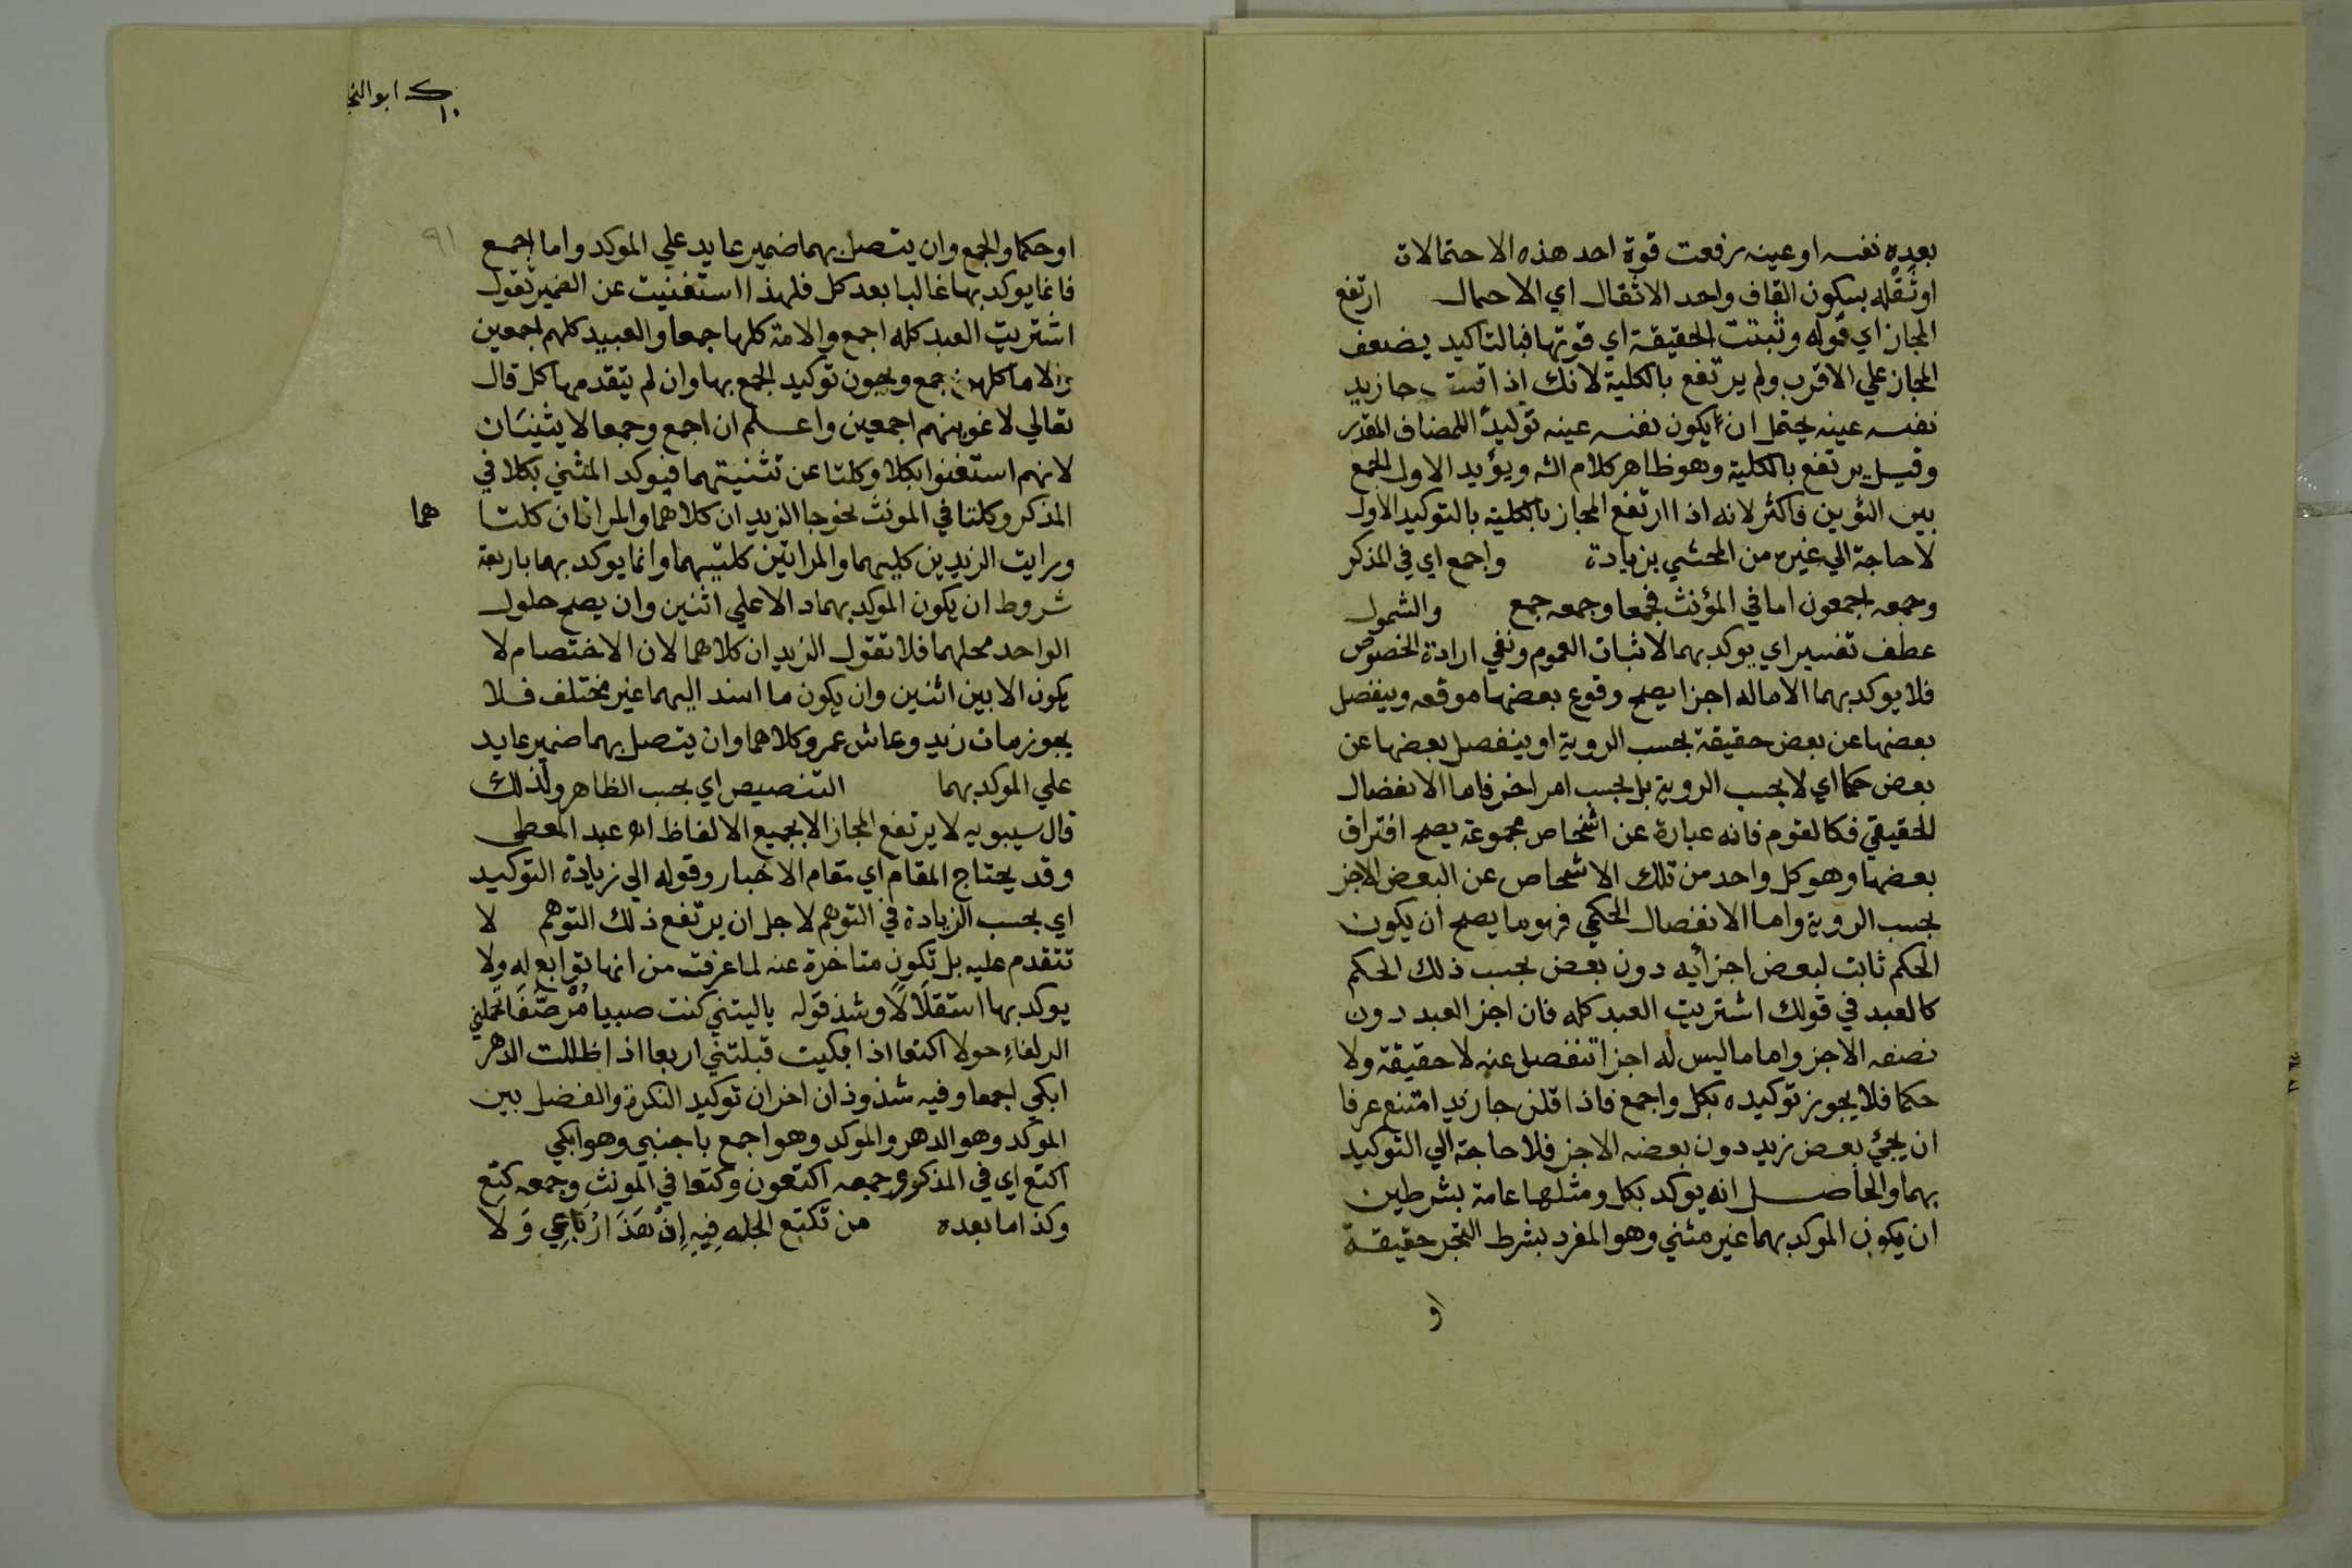 بعده نفسه اوعينه رفعت قوة احد هذه الاحتمالات
اوثقله بسكون القاف واحد الاثقال اي الاحمال ارتفع
المجاز اي قوله وثبتت الحقيقة اي قوتها فبالتاكيد يضعف
المجاز علي الاقرب ولم يرتفع بالكلية لانك اذا قلت جا زيد
نفسه عينه يحتمل ان يكون نفسه عينه توكيدا للمضاف المقدر
وقيل يرتفع بالكلية وهو ظاهر كلام الش ويؤيد الاول الجمع
بين فاكثر لانه اذا ارتفع المجاز بالكلية بالتوكيد الاول
لا حاجة الي غيره من المحشي بزيادة واجمع اي في المذكر
وجمعه اجمعون اما في المؤنث فجمعا وجمعه جمع والشمول
عطف تفسير اي يوكد بهما لاثبات العموم ونفي ارادة الخصوص
فلا يوكد بهما الا ماله اجزا يصح وقوع بعضها موقعه وينفصل
بعضها عن بعض حقيقة بحسب الروية او ينفصل بعضها عن
بعض حكما اي لا بحسب الروية بل بحسب امر اخر فاما الانفصال
الحقيقي فكالقوم فانه عبارة عن اشخاص مجموعة يصح افتراق
بعضها وهو كل واحد من تلك الاشخاص عن البعض الاخر
بحسب الروية واما الانفصال الحكمي فهو ما يصح ان يكون
الحكم ثابت لبعض اجزأيه دون بعض بحسب ذلك الحكم
كالعبد في قولك اشتريت العبد كله فان اجز العبد دون
نصفه الاجز واما ما ليس له اجزا تنفصل عنه لا حقيقة ولا
حكما فلا يجوز توكيده بكل واجمع فاذا قلت جا زيد امتنع عرفا
ان يجئ بعض زيد دون بعضه الاخر فلا حاجة الي التوكيد
بهما والحاصل انه يوكد بكل ومثلها عامة بشرطين
ان يكون الموكد بهما غير مثني وهو المفرد بشرط التجز حقيقة
او
ابو النجا
١٠
٩١
او حكما والجمع وان يتصل بهما ضمير عايد علي الموكد واما اجمع
فانما يوكد بها غالبا بعد كل فلهذا استغنيت عن الضمير تقول
اشتريت العبد كله اجمع والامة كلها جمعا والعبيد كلهم اجمعين
والاما كلهن جمع ويجوز توكيد الجمع بها وان لم يتقدمها كل قال
تعالي لاغوينهم اجمعين واعلم ان اجمع وجمعا لا يثنيان
لانهم استغنوا بكلا وكلتا عن تثنيتهما فيوكد المثني بكلا في
المذكر وكلتا في المونث نحو جا الزيدان كلاهما والمراتان كلتا هما
ورايت الزيدين كليهما والمراتين كلتيهما وانما يوكد بهما باربعة
شروط ان يكون الموكد بهما دالا علي اثنين وان يصح حلول
الواحد محلهما فلا تقول الزيدان كلاهما لان الاختصام لا
يكون الا بين اثنين وان يكون ما اسند اليهما غير مختلف فلا
يجوز مات زيد وعاش عمرو كلاهما وان يتصل بهما ضمير عايد
علي الموكد بهما التنصيص اي بحسب الظاهر ولذلك
قال سيبويه لا يرتفع المجاز الا بجميع الالفاظ اه عبد المعطي
وقد يحتاج المقام اي مقام الاخبار وقوله الي زيادة التوكيد
اي بحسب الزيادة في التوهم لاجل ان يرتفع ذلك التوهم لا
تتقدم عليه بل تكون متاخرة عنه لما عرفت من انها توابع له ولا
يوكد بها استقلالا وشذ قوله ياليتني كنت صبيا مرضعا تحملني
الدلفاء حولا اكتعا اذا بكيت قبلتني اربعا اذا ظللت الدهر
ابكي اجمعا وفيه شذوذان اخران توكيد النكرة والفصل بين
الموكد وهو الدهر والموكد وهو اجمع باجنبي وهو ابكي
اكتع اي في المذكر وجمعه اكتعون وكتعا في المونث وجمعه كتع
وكذا ما بعده من تكتع الجلد فيه إذ هذا رباعي ولا